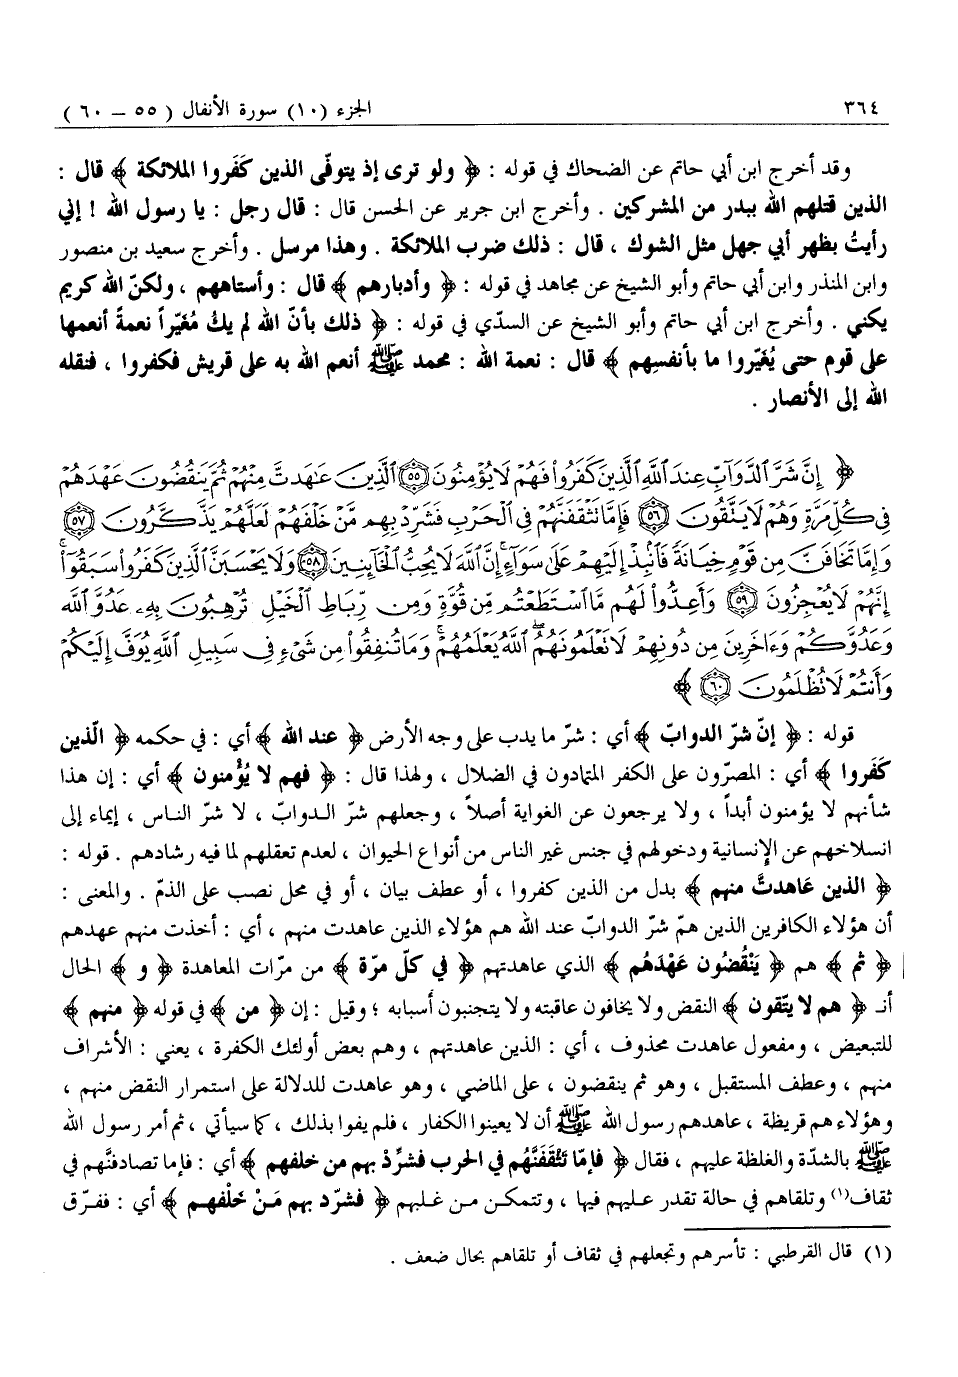 ٣٦٤ الجزء (١٠) سورة الأنفال ( ٥٥ – ٦٠ )
وقد أخرج ابن أبي حاتم عن الضحاك في قوله : ﴿ ولو ترى إذ يتوفّى الذين كَفَروا الملائكة ﴾ قال :
الذين قتلهم الله ببدر من المشركين . وأخرج ابن جرير عن الحسن قال : قال رجل : يا رسول الله ! إني
رأيتُ بظهر أبي جهل مثل الشوك ، قال : ذلك ضرب الملائكة . وهذا مرسل . وأخرج سعيد بن منصور
وابن المنذر وابن أبي حاتم وأبو الشيخ عن مجاهد في قوله : ﴿ وأدبارهم ﴾ قال : وأستاههم ، ولكنّ الله كريم
يكني . وأخرج ابن أبي حاتم وأبو الشيخ عن السدّي في قوله : ﴿ ذلك بأنّ الله لم يكُ مُغَيّراً نعمةً أنعمها
على قوم حتى يُغَيّروا ما بأنفسِهم ﴾ قال : نعمة الله : محمد ﷺ أنعم الله به على قريش فكفروا ، فنقله
الله إلى الأنصار .
﴿ إِنَّ شَرَّ ٱلدَّوَآبِّ عِندَ ٱللَّهِ ٱلَّذِينَ كَفَرُوا۟ فَهُمْ لَا يُؤْمِنُونَ ۝٥٥ ٱلَّذِينَ عَٰهَدتَّ مِنْهُمْ ثُمَّ يَنقُضُونَ عَهْدَهُمْ
فِى كُلِّ مَرَّةٍ وَهُمْ لَا يَتَّقُونَ ۝٥٦ فَإِمَّا تَثْقَفَنَّهُمْ فِى ٱلْحَرْبِ فَشَرِّدْ بِهِم مَّنْ خَلْفَهُمْ لَعَلَّهُمْ يَذَّكَّرُونَ ۝٥٧
وَإِمَّا تَخَافَنَّ مِن قَوْمٍ خِيَانَةً فَٱنۢبِذْ إِلَيْهِمْ عَلَىٰ سَوَآءٍ ۚ إِنَّ ٱللَّهَ لَا يُحِبُّ ٱلْخَآئِنِينَ ۝٥٨ وَلَا يَحْسَبَنَّ ٱلَّذِينَ كَفَرُوا۟ سَبَقُوٓا۟ ۚ
إِنَّهُمْ لَا يُعْجِزُونَ ۝٥٩ وَأَعِدُّوا۟ لَهُم مَّا ٱسْتَطَعْتُم مِّن قُوَّةٍ وَمِن رِّبَاطِ ٱلْخَيْلِ تُرْهِبُونَ بِهِۦ عَدُوَّ ٱللَّهِ
وَعَدُوَّكُمْ وَءَاخَرِينَ مِن دُونِهِمْ لَا تَعْلَمُونَهُمُ ٱللَّهُ يَعْلَمُهُمْ ۚ وَمَا تُنفِقُوا۟ مِن شَىْءٍ فِى سَبِيلِ ٱللَّهِ يُوَفَّ إِلَيْكُمْ
وَأَنتُمْ لَا تُظْلَمُونَ ۝٦٠ ﴾
قوله : ﴿ إنّ شرّ الدوابّ ﴾ أي : شرّ ما يدب على وجه الأرض ﴿ عند الله ﴾ أي : في حكمه ﴿ الّذين
كَفَروا ﴾ أي : المصرّون على الكفر المتمادون في الضلال ، ولهذا قال : ﴿ فهم لا يُؤْمنون ﴾ أي : إن هذا
شأنهم لا يؤمنون أبداً ، ولا يرجعون عن الغواية أصلاً ، وجعلهم شرّ الـدوابّ ، لا شرّ النـاس ، إيماء إلى
انسلاخهم عن الإنسانية ودخولهم في جنس غير الناس من أنواع الحيوان ، لعدم تعقلهم لما فيه رشادهم . قوله :
﴿ الذين عَاهدتَّ منهم ﴾ بدل من الذين كفروا ، أو عطف بيان ، أو في محل نصب على الذمّ . والمعنى :
أن هؤلاء الكافرين الذين همّ شرّ الدوابّ عند الله هم هؤلاء الذين عاهدت منهم ، أي : أخذت منهم عهدهم
﴿ ثم ﴾ هم ﴿ يَنْقُضُون عَهْدَهُم ﴾ الذي عاهدتهم ﴿ في كلّ مرّة ﴾ من مرّات المعاهدة ﴿ و ﴾ الحال
أنـ ﴿ هم لا يتّقون ﴾ النقض ولا يخافون عاقبته ولا يتجنبون أسبابه ؛ وقيل : إن ﴿ من ﴾ في قوله ﴿ منهم ﴾
للتبعيض ، ومفعول عاهدت محذوف ، أي : الذين عاهدتهم ، وهم بعض أولئك الكفرة ، يعني : الأشراف
منهم ، وعطف المستقبل ، وهو ثم ينقضون ، على الماضي ، وهو عاهدت للدلالة على استمرار النقض منهم ،
وهؤلاء هم قريظة ، عاهدهم رسول الله ﷺ أن لا يعينوا الكفار ، فلم يفوا بذلك ، كما سيأتي ، ثم أمر رسول الله
ﷺ بالشدّة والغلظة عليهم ، فقال ﴿ فإمّا تَثْقَفَنَّهُم في الحرب فشرِّدْ بهم من خلفهم ﴾ أي : فإما تصادفنَّهم في
ثقاف(١) وتلقاهم في حالة تقدر عليهم فيها ، وتتمكن من غلبهم ﴿ فشرّد بهم مَنْ خَلْفهـم ﴾ أي : ففرّق
(١) قال القرطبي : تأسرهم وتجعلهم في ثقاف أو تلقاهم بحال ضعف .